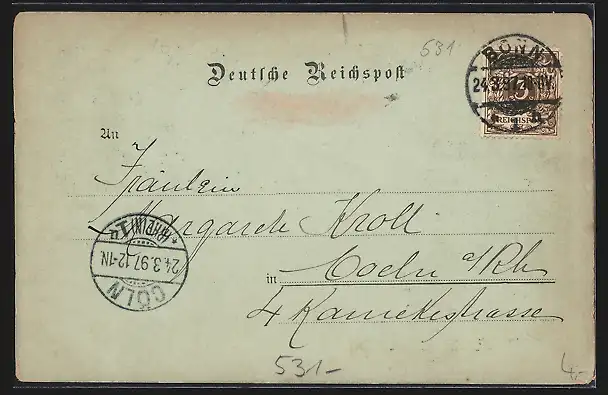 531
Deutsche Reichspost
BONN
24.3.97.
3
REICHSPOST
An
Fräulein
Margarete Kroll
in Coeln a/Rh
4
CÖLN
24.3.97.12-1N.
(RHEIN)
531-
4,-